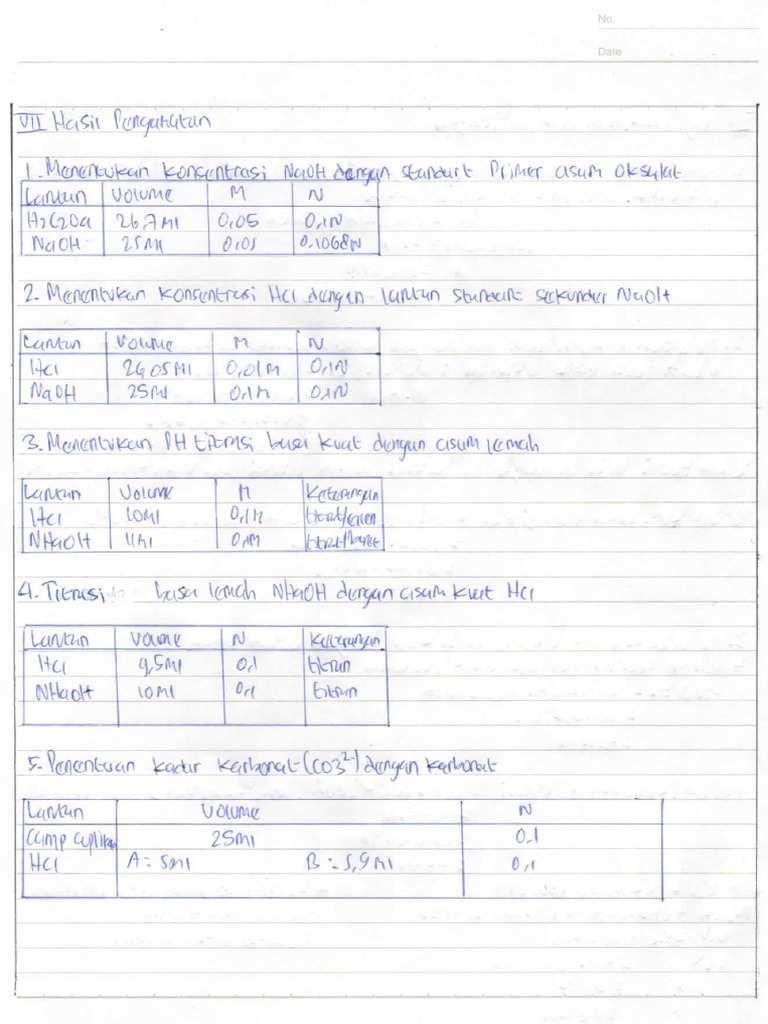 No.
Date
VII Hasil Pengamatan
1. Menentukan Konsentrasi NaOH dengan standart Primer asam Oksalat
Larutan Volume M N
H2C2O4 26,7 Ml 0,05 0,1N
NaOH 25Ml 0,05 0,1068N
2. Menentukan Konsentrasi HCl dengan larutan standart sekunder NaOH
Larutan Volume M N
HCl 24,05Ml 0,01M 0,1N
NaOH 25Ml 0,1M 0,1N
3. Menentukan PH titrasi basa kuat dengan asam lemah
Larutan Volume M Keterangan
HCl 10Ml 0,1M
NH4OH 11Ml 0,1M
4. Titrasi basa lemah NH4OH dengan asam kuat HCl
Larutan Volume N Keterangan
HCl 9,5Ml 0,1 titran
NH4OH 10Ml 0,1 titran
5. Penentuan kadar karbonat (CO3²⁻) dengan karbonat
Larutan Volume N
Camp Cuplikan 25Ml 0,1
HCl A = 5Ml B = 5,9 Ml 0,1